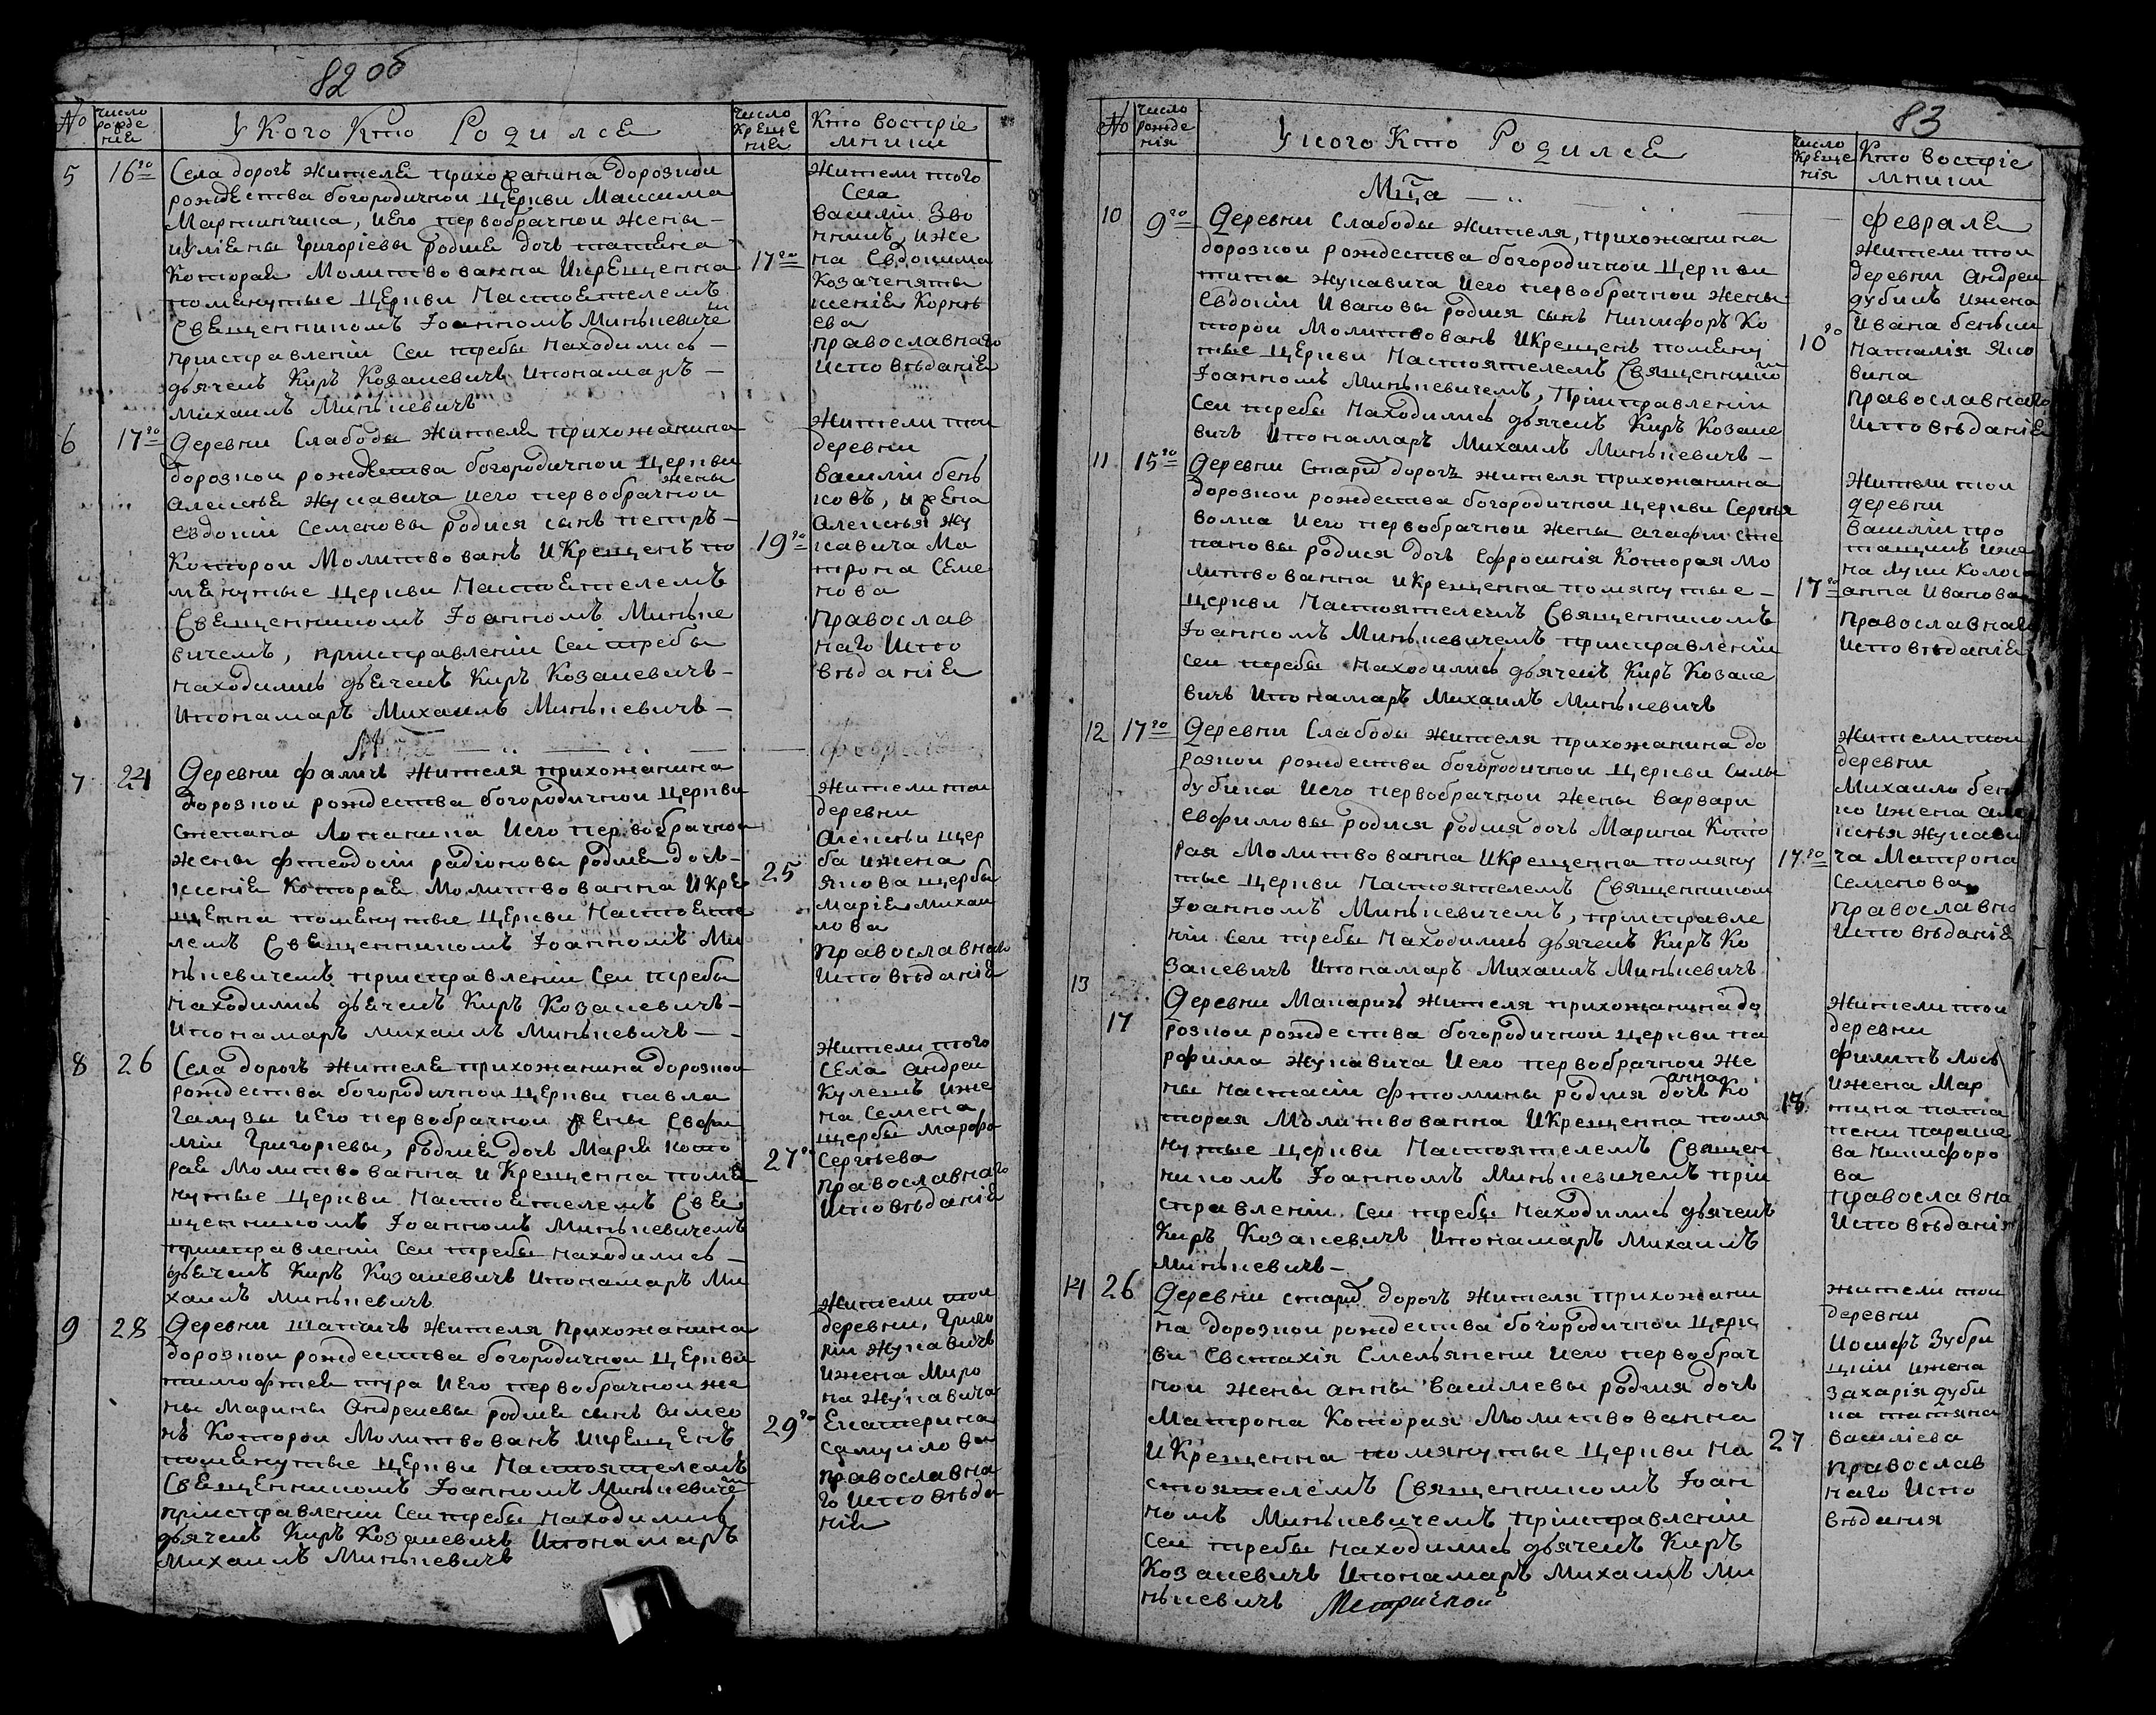 82 об
№
число рожде нія
У Кого Кто Родилсѣ
число Креще нія
Кто востріе мники
5
16го
Села дорогъ жителѣ прихожанина дорозкои
рождества богородичнои церкви Максима
Мартинчика, иего первобрачнои жены –
иулiены григоріевы родисѣ дочь татѣна
Котораѣ Молитвованна икрещенна
помѣнутые церкви Настоѣтелемъ
Свѣщенникомъ Іоанномъ Минькевиче м
приисправленіи сеи требы находились –
дьячекъ Киръ Козакевичъ ипонамаръ –
Михаилъ Минькевичъ
17го
жители того
села
василіи Зво
нникъ, ижѣ
на Евдокима
Козаченяты
ксеніѣ Корнѣ
ева
православнаго
исповѣданіѣ
6
17го
Деревни Слабоды жителѣ прихожанина
дорозкои рождества богородичнои церкви
Алексѣѣ жукавича иего первобрачнои жены
евдокіи Семеновы родися сынъ петръ –
Которои Молитвованъ икрещенъ по
мѣнутые церкви Настоѣтелемъ
Свѣщенникомъ Іоанномъ Минькe
вичемъ, приисправленіи сеи требы
находились дьѣчекъ Киръ Козакевичъ –
ипонамаръ Михаилъ Минькевичъ –
19го
жители тои
деревни
василіи бень
ковъ, ижена
Алексѣя жу
кавича Ма
трона Семе
нова
православ
наго испо
вѣданіѣ
Мца
февраля
7
24
Деревни фаличъ жителя прихожанина
дорозкои рождества богородичнои церкви
степана Лопанина иего первобрачнои
жены фтеодосіи радіоновы родисѣ дочь –
ксеніѣ Котораѣ Молитвованна икре
щенна помѣнутые церкви Настоѣте
лемъ Свѣщенникомъ Іоанномъ Ми
нькевичемъ приисправленіи сеи требы
находились дьѣчекъ Киръ Козакевичъ –
ипонамаръ михаилъ минькевичъ –
25
жители тои
деревни
Алексѣи щер
ба ижена
якова щербы
маріѣ михаи
лова
православнаго
исповѣданіѣ
8
26
Села дорогъ жителѣ прихожанина дорозкои
рождества богородичнои церкви павла
Галузы иего первобрачнои жены Евфи
міи григоріевы, родисѣ дочь Маріѣ кото
раѣ Молитвованна и крещенна помѣ
нутые церкви Настоѣтелемъ Свѣ
щенникомъ Іоанномъ минькевичемъ
приисправленіи сеи требы находились –
дьѣчекъ Киръ Козакевичъ ипонамаръ Ми
хаилъ минькевичъ
27го
жители того
села андреи
Кулешъ иже
на Семена
щербы Марфа
Сергѣева
православнаго
исповѣданіѣ
9
28
Деревни шапчичъ жителя прихожанина
дорозкои рождества богородичнои церкви
тимофтеѣ тура иего первобрачнои же
ны Марины Андреевы родисѣ сынъ симео
нъ Которои Молитвованъ икрещенъ
помѣнутые церкви Настоятелемъ
Свѣщенникомъ Іоанномъ Минькевичем
приисправленіи сеи требы находились
дьячекъ Киръ Козакевичъ ипонамаръ
михаилъ Минькевичъ
29го
жители тои
деревни, григо
ріи жукавичъ
ижена Миро
на жукавича
Екатерина
самуилова
православна
го исповѣда
ніѣ
83
№
число рожде нія
У кого Кто Родилсѣ
число креще нія
Кто востріе мники
Мца
февралѣ
10
9го
Деревни Слабоды жителя, прихожанина
дорозкои рождества богородичнои церкви
тита жукавича иего первобрачнои жены
евдокіи Ивановы родися сынъ никифоръ Ко
торои Молитвованъ икрещенъ помѣну
тые церкви Настоятелемъ Священнико м
Іоанномъ Минькевичемъ, приисправленіи
сеи требы находились дьячекъ Киръ Козаке
вичъ ипонамаръ Михаилъ Минькевичъ –
10го
жители тои
деревни андреи
дубикъ ижена
ивана беньки
наталія яко
вина
православнаго
исповѣданіѣ
11
15го
Деревни старид дорогъ жителя прихожанина
дорозкои рождества богородичнои церкви Сергѣя
волка иего первобрачнои жены агафіи сте
пановы родися дочь ефросинія Которая мо
литвованна икрещенна помянутые –
церкви Настоятелемъ Священникомъ
Іоанномъ Минькевичемъ приисправленіи
сеи требы находились дьячекъ Киръ Козаке
вичъ ипонамаръ Михаилъ Минькевичъ
17го
жители тои
деревни
василіи про
тащикъ иже
на луки Колоса
анна Иванова
православнаго
исповѣданіѣ
12
17го
Деревни Слабоды жителя прихожанина до
розкои рождества богородичнои церкви Силы
дубика иего первобрачнои жены варвары
евфимовы родися родися дочь Марина Кото
рая Молитвованна икрещенна помяну
тые церкви Настоятелемъ Священником
Іоанномъ Минькевичемъ, приисправле
ніи сеи требы находились дьячекъ Киръ Ко
закевичъ ипонамаръ Михаилъ Минькевичъ
17го
жители тои
деревни
Михаило бень
ко ижена але
ксѣя жукави
ча Матрона
Семенова
православна
исповѣданіѣ
13
17
Деревни Макаричъ жителя прихожанина до
розкои рождества богородичнои церкви па
рфима жукавича иего первобрачнои же
ны настасіи фтомины родися дочь анна Ко
торая Молитвованна икрещенна помя
нутые церкви Настоятелемъ Священ
никомъ Іоанномъ Минькевичемъ при
справленіи сеи требы находились дьячекъ
Киръ Козакевичъ ипонамаръ михаилъ
минькевичъ –
18
жители тои
деревни
филипъ Лось
ижена Мар
тина пата
пени параске
ва никифоро
ва
православна
исповѣданія
14
26
Деревни старид дорогъ жителя прихожани
на дорозкои рождества богородичнои церк
ви Евстахія Емельянени иего первобрач
нои жены анны василевы родися дочь
Матрона Которая Молитвованна
икрещенна помянутые церкви На
стоятелемъ Священникомъ Іоан
номъ Минькевичемъ приисправленіи
сеи требы находились дьячекъ Киръ
Козакевичъ ипонамаръ Михаилъ Ми
нькевичъ Метрической
27
жители тои
деревни
иосифъ Зубри
цкіи ижена
Захарія дуби
ка татяна
василіева
православ
наго испо
вѣдания